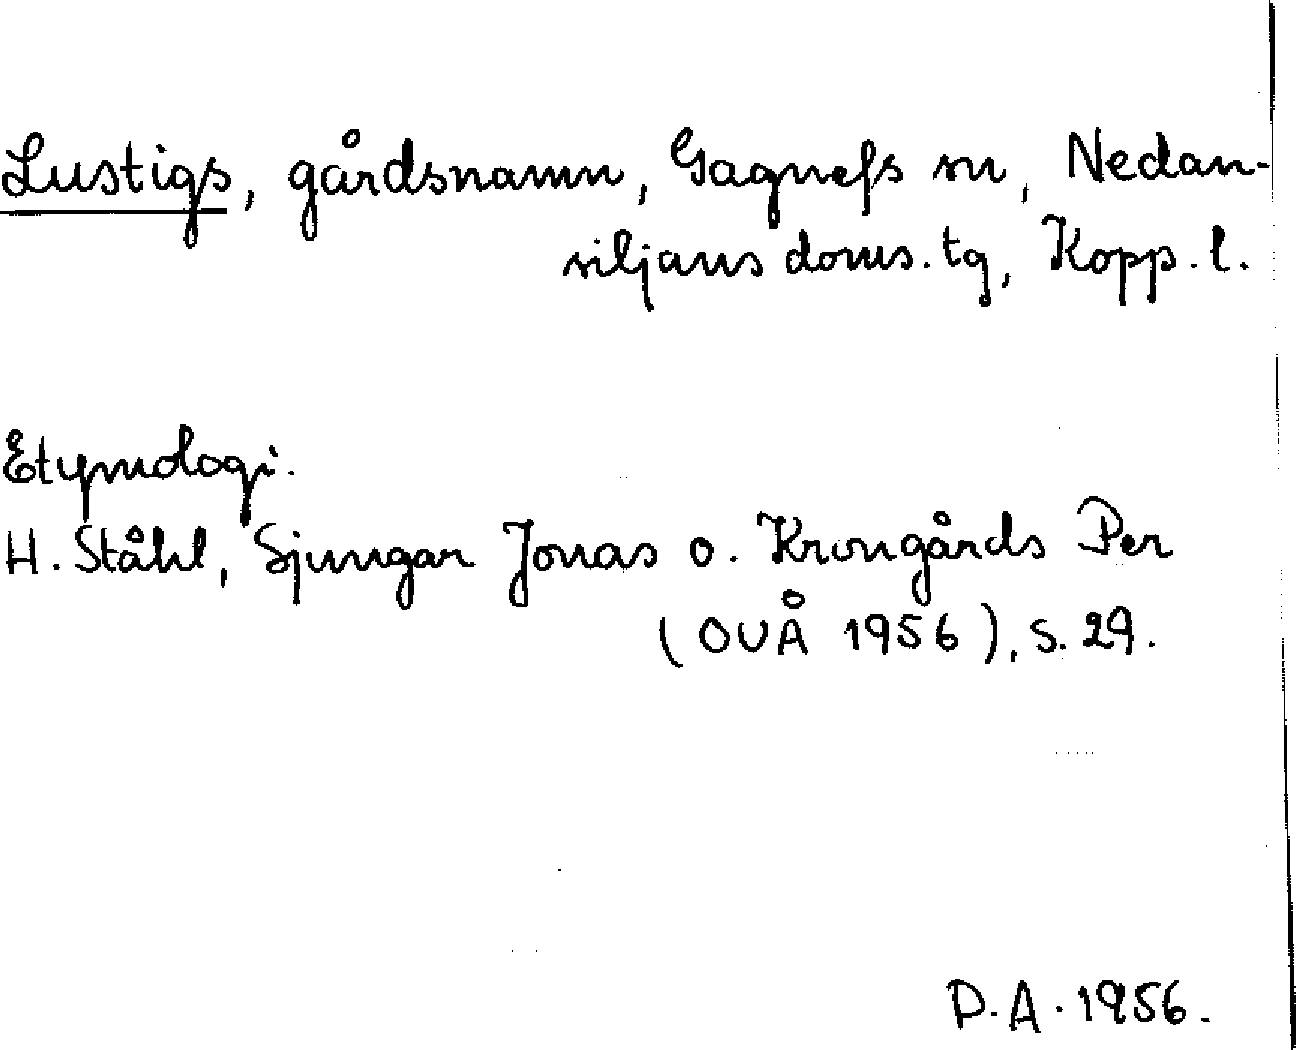 Lustigs, gårdsnamn, Gagnefs sn, Nedan-
siljans doms. tg, Kopp. l.
Etymologi.
H. Ståhl, Sjungar Jonas o. Krongårds Per
(OUÅ 1956), s. 29.
P.A. 1956.